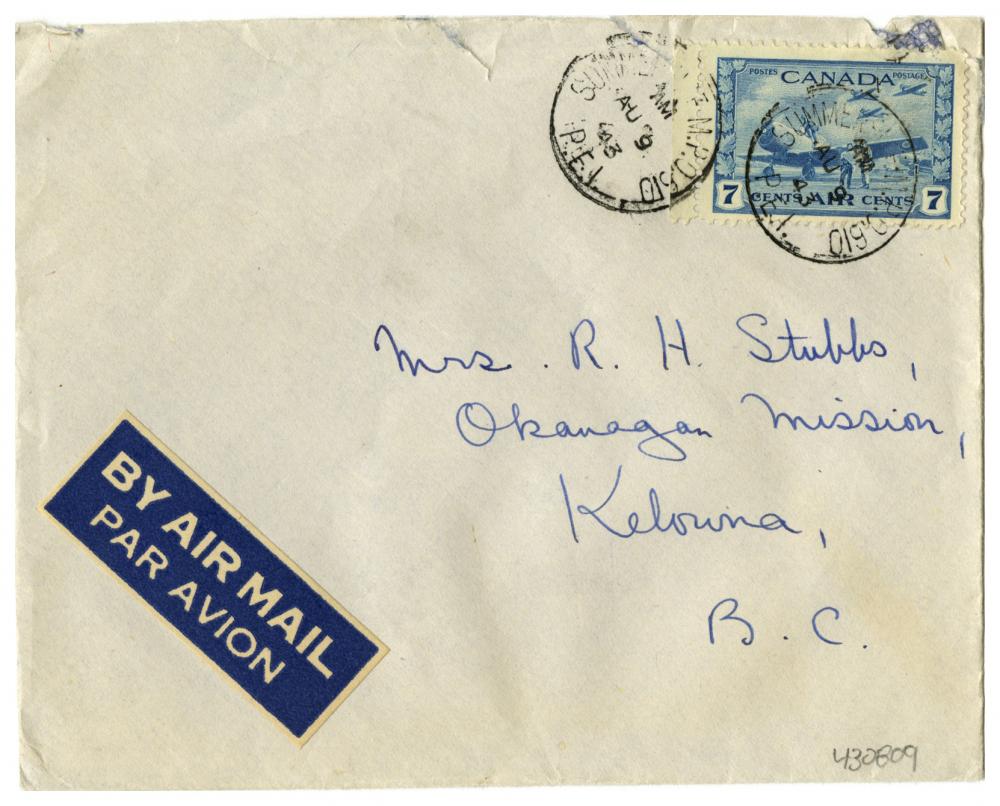 SUMMERSIDE M.P.O. 610
AM
AU 9
43
P.E.I.
POSTES CANADA POSTAGE
7 CENTS AIR CENTS 7
SUMMERSIDE M.P.O. 610
AM
AU 9
43
P.E.I.
Mrs. R. H. Stubbs,
Okanagan Mission,
Kelowna,
B. C.
BY AIR MAIL
PAR AVION
430809